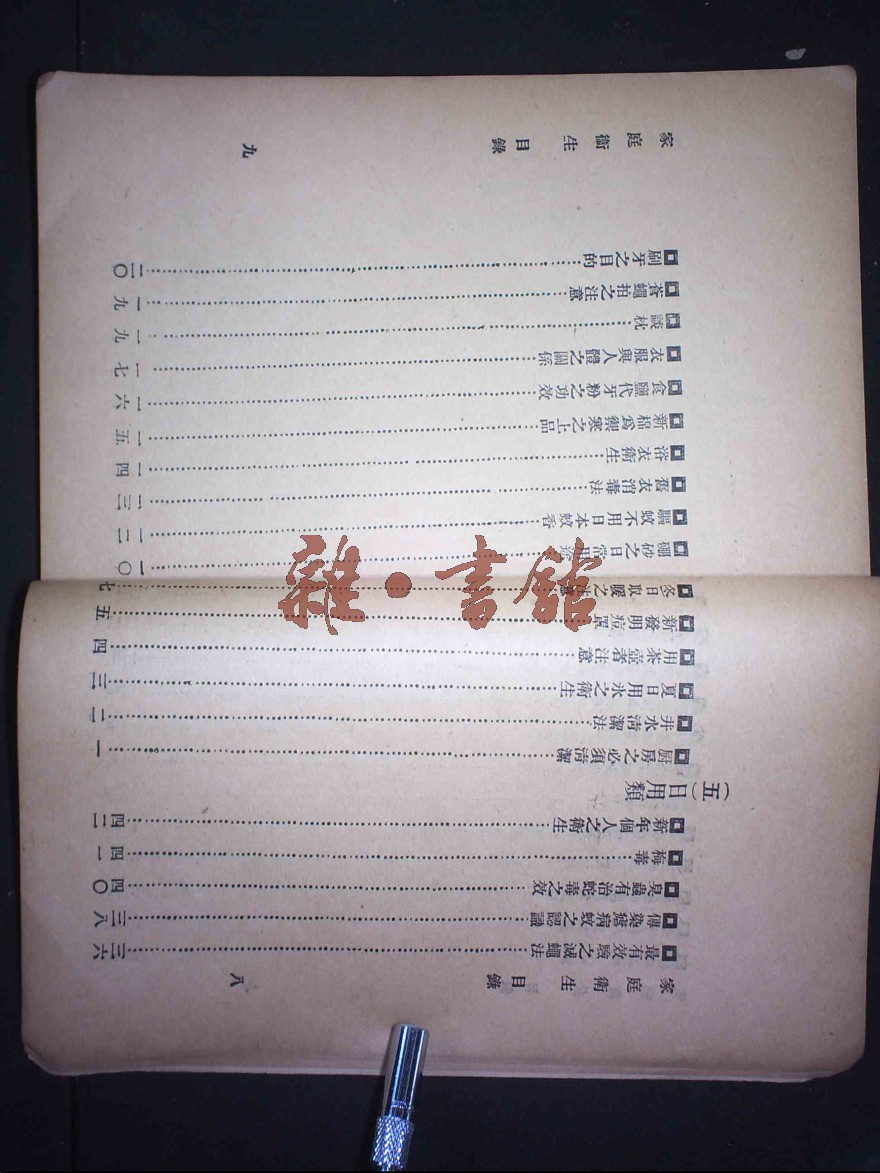 家庭衛生 目錄 八
最有效驗之滅蠅法 三六
傳染瘧病蚊之認識 三八
臭蟲有治蛇毒之效 四〇
梅毒 四一
新年個人之衛生 四二
(五)日用類
厨房之必須清潔 一
井水清潔法 二
夏日用氷之衛生 三
用茶壺者注意 四
新發明痘罩 五
冬日取暖之 七
硼砂之日常用 一〇
驅蚊不用日本蚊香 一二
舊衣消毒法 一三
浴衣衛生 一四
新棉爲禦寒之上品 一五
食鹽代牙粉之功效 一六
衣服與人體之關係 一七
談枕 一九
蒼蠅拍之注意 一九
刷牙之目的 二〇
家庭衛生 目錄 九
雜·書館